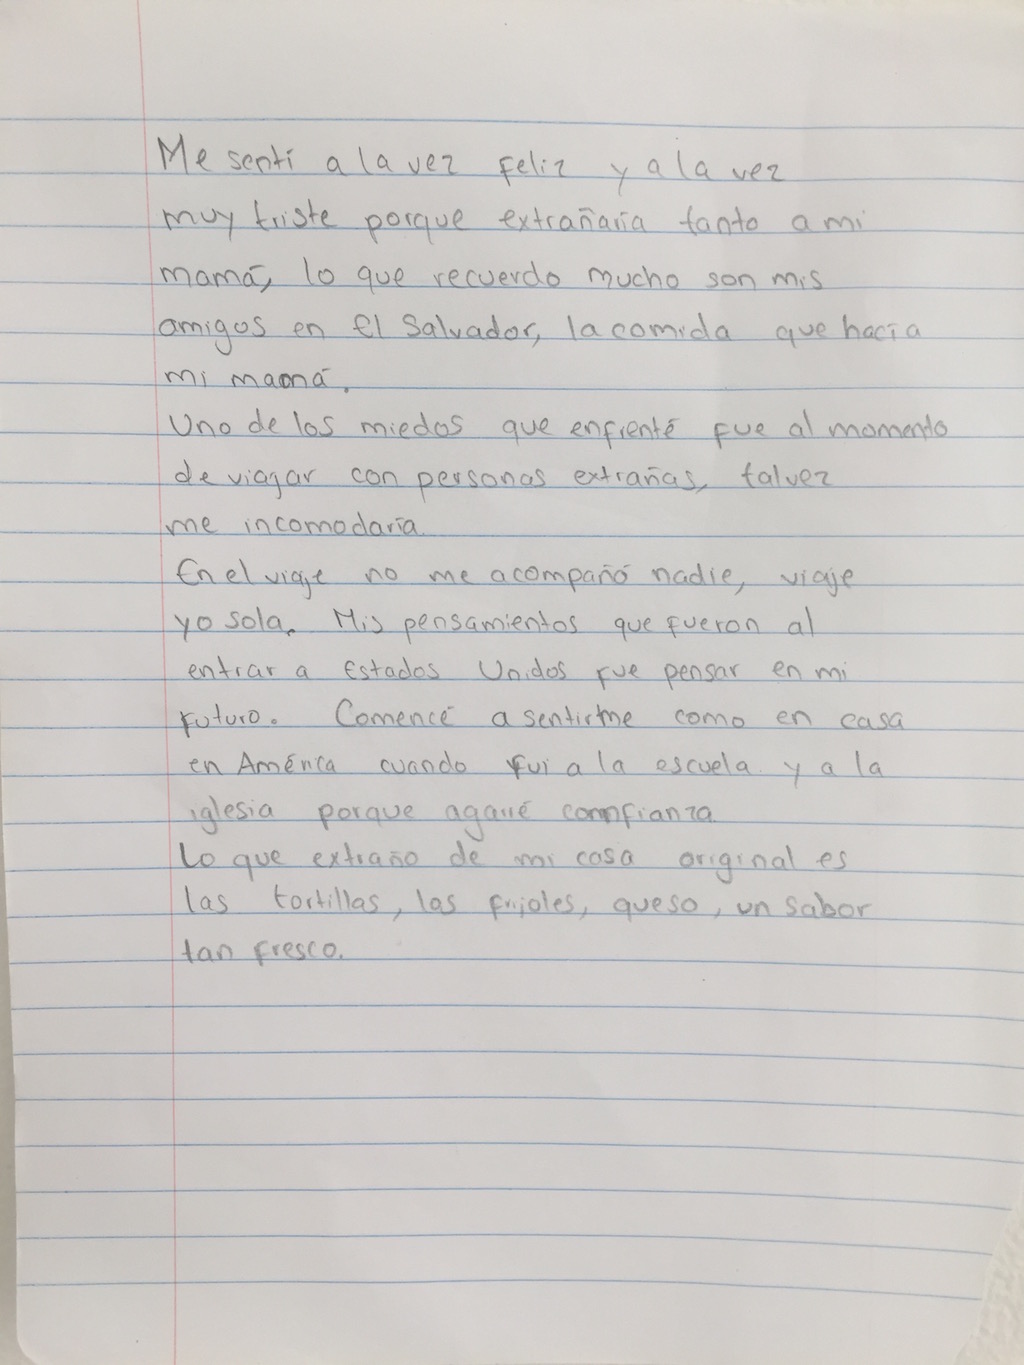 Me sentí a la vez feliz y a la vez
muy triste porque extrañaría tanto a mi
mamá, lo que recuerdo mucho son mis
amigos en El Salvador, la comida que hacía
mi mamá.
Uno de los miedos que enfrenté fue al momento
de viagar con personas extrañas, talvez
me incomodaría.
En el viaje no me acompañó nadie, viaje
yo sola. Mis pensamientos que fueron al
entrar a Estados Unidos fue pensar en mi
futuro. Comencé a sentirme como en casa
en América cuando fui a la escuela y a la
iglesia porque agarré comfianza
Lo que extraño de mi casa original es
las tortillas, los frijoles, queso, un sabor
tan fresco.